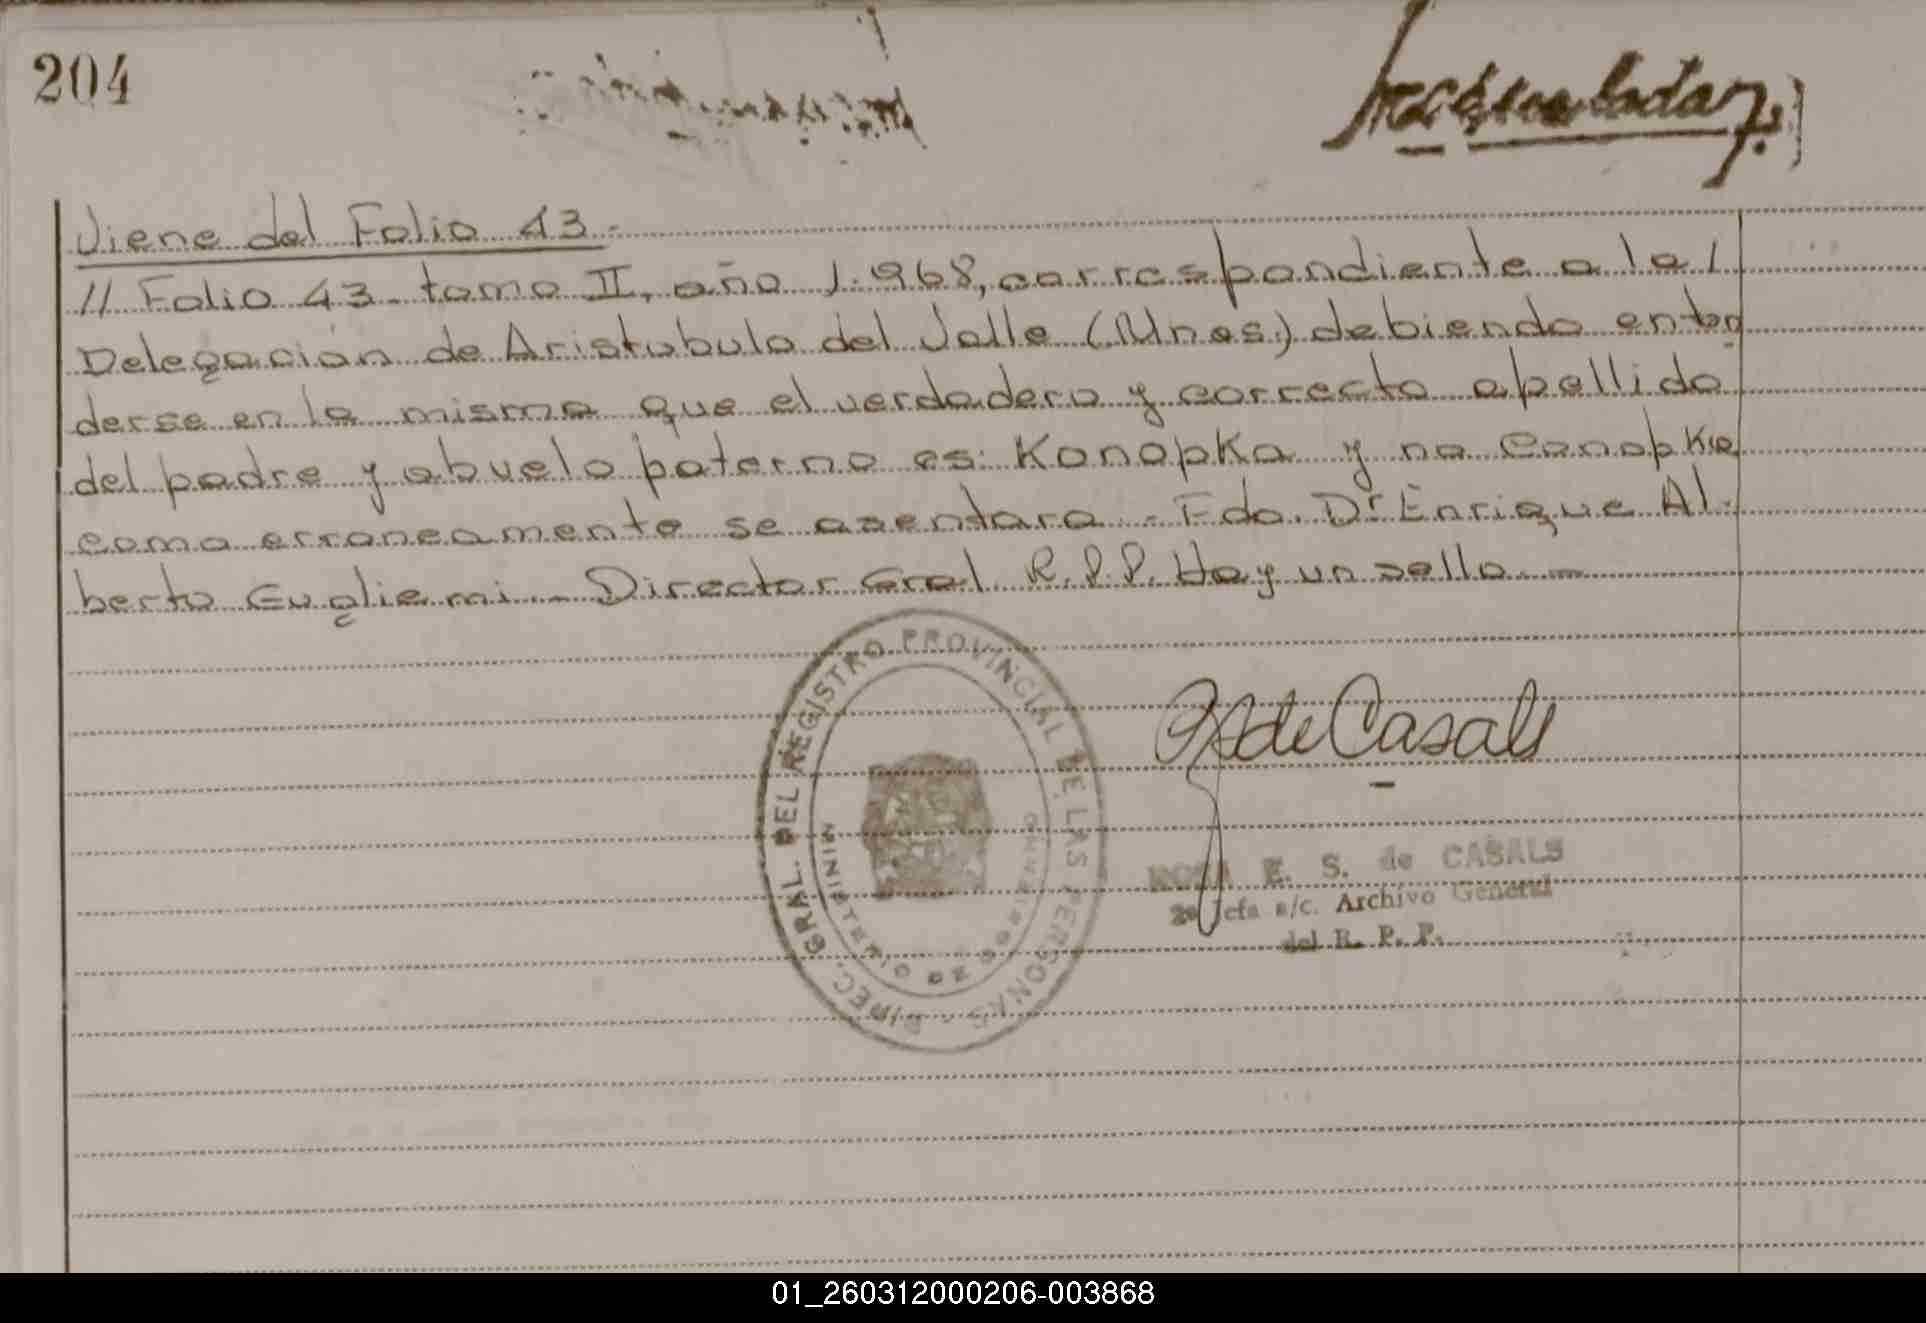 204
Viene del Folio 43.-
// Folio 43- tomo II, año 1.968, correspondiente a la /
Delegación de Aristobulo del Valle (Mnes.) debiendo enten
derse en la misma que el verdadero y correcto apellido
del padre y abuelo paterno es: Konopka y no Conopka
como erroneamente se asentara.- Fdo. Dr Enrique Al-
berto Gugliemi.- Director Gral R.P.P. Hay un sello.-
DIREC. GRAL. DEL REGISTRO PROVINCIAL DE LAS PERSONAS -
MINISTERIO DE GOBIERNO
de Casals
ROSA E. S. de CASALS
2a Jefa a/c. Archivo General
del R. P. P.
01_260312000206-003868